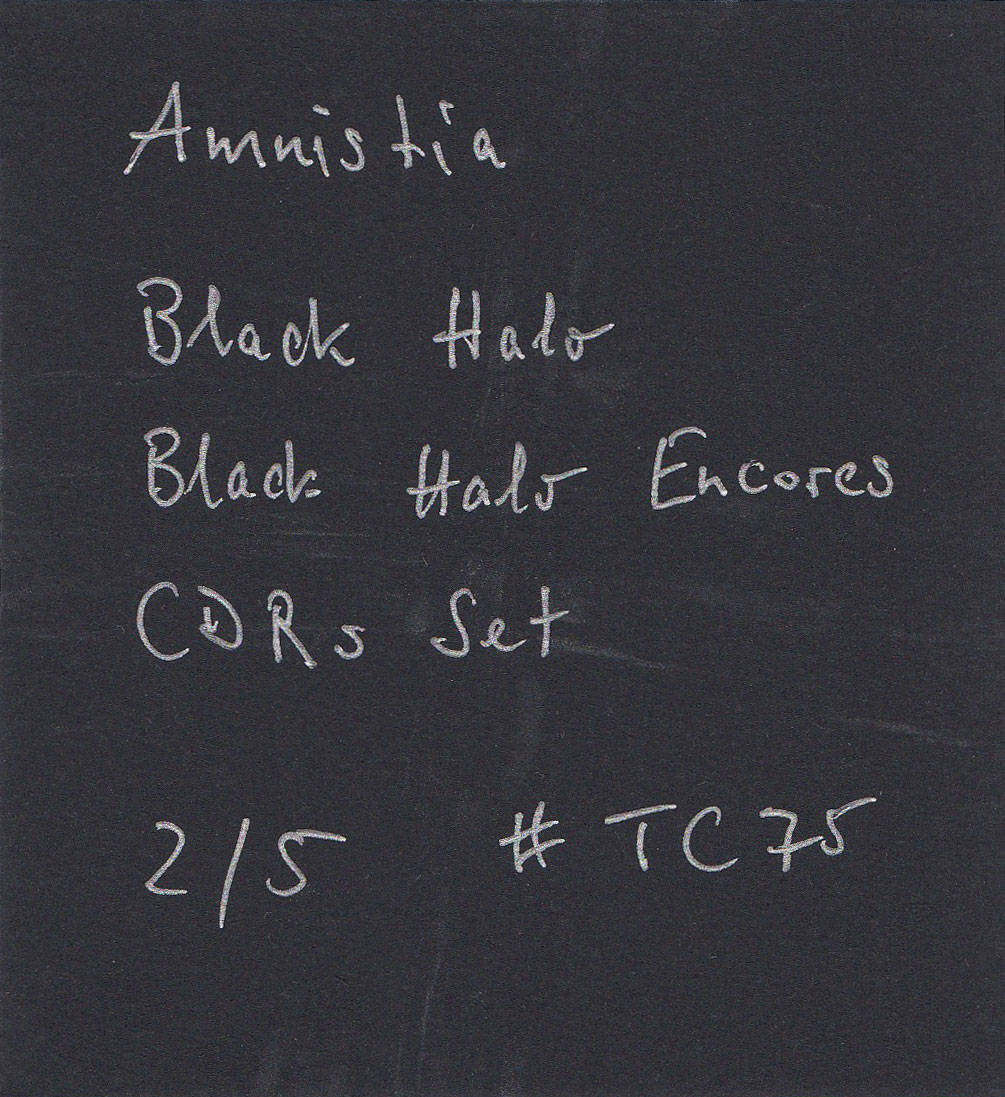 Amnistia
Black Halo
Black Halo Encores
CDRs Set
2/5 # TC75